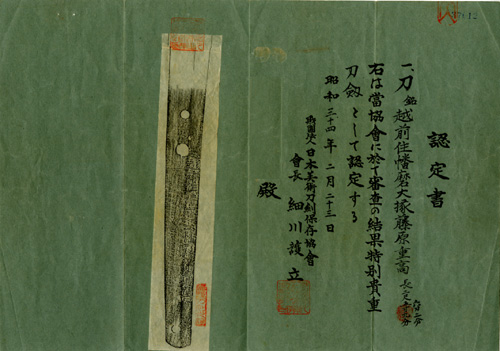 認定書
一、刀 銘 越前住幡磨大掾藤原重高 長弐尺
右は當協會に於て審査の結果特別貴重
刀劔として認定する
昭和三十四年二月二十三日
財團法人日本美術刀剣保存協會
會長 細川護立
殿